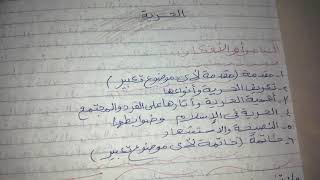 الحرية
العناصر أهم الأفكار
١- مقدمة (مقدمة لأى موضوع تعبير)
٢- تعريف الحرية وأنواعها
٣- أهمية الحرية وآثارها على الفرد والمجتمع
٤- الحرية فى الإسلام وضوابطها
٥- النصيحة والاستشهاد
٦- خاتمة (خاتمة لأى موضوع تعبير)